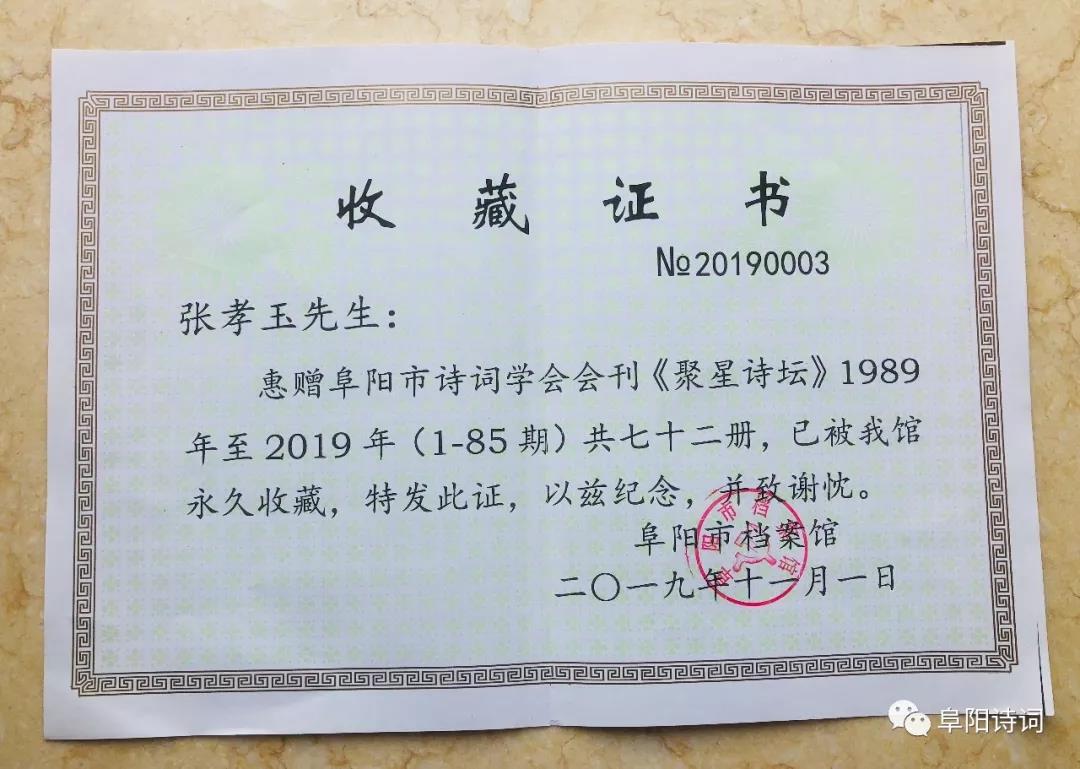 收藏证书
№20190003
张孝玉先生：
惠赠阜阳市诗词学会会刊《聚星诗坛》1989
年至2019年（1-85期）共七十二册，已被我馆
永久收藏，特发此证，以兹纪念，并致谢忱。
阜阳市档案馆
二〇一九年十一月一日
阜阳市档案馆
阜阳诗词